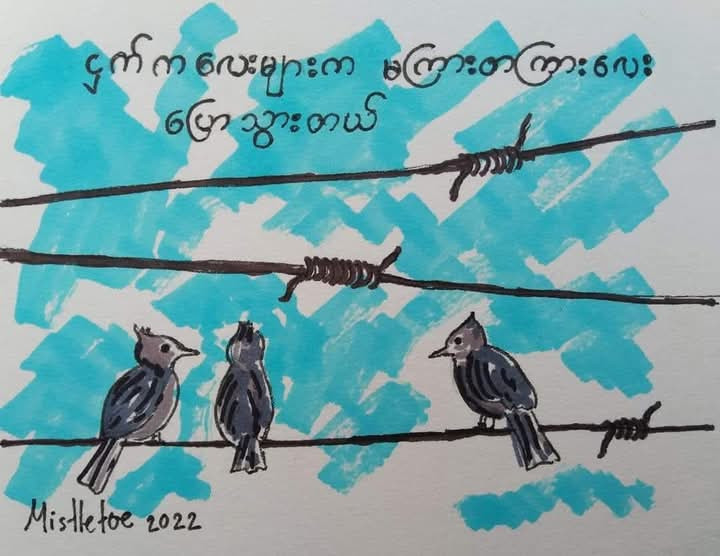 ငှက်ကလေးများက မကြားတကြားလေး
ပြောသွားတယ်
Mistletoe 2022